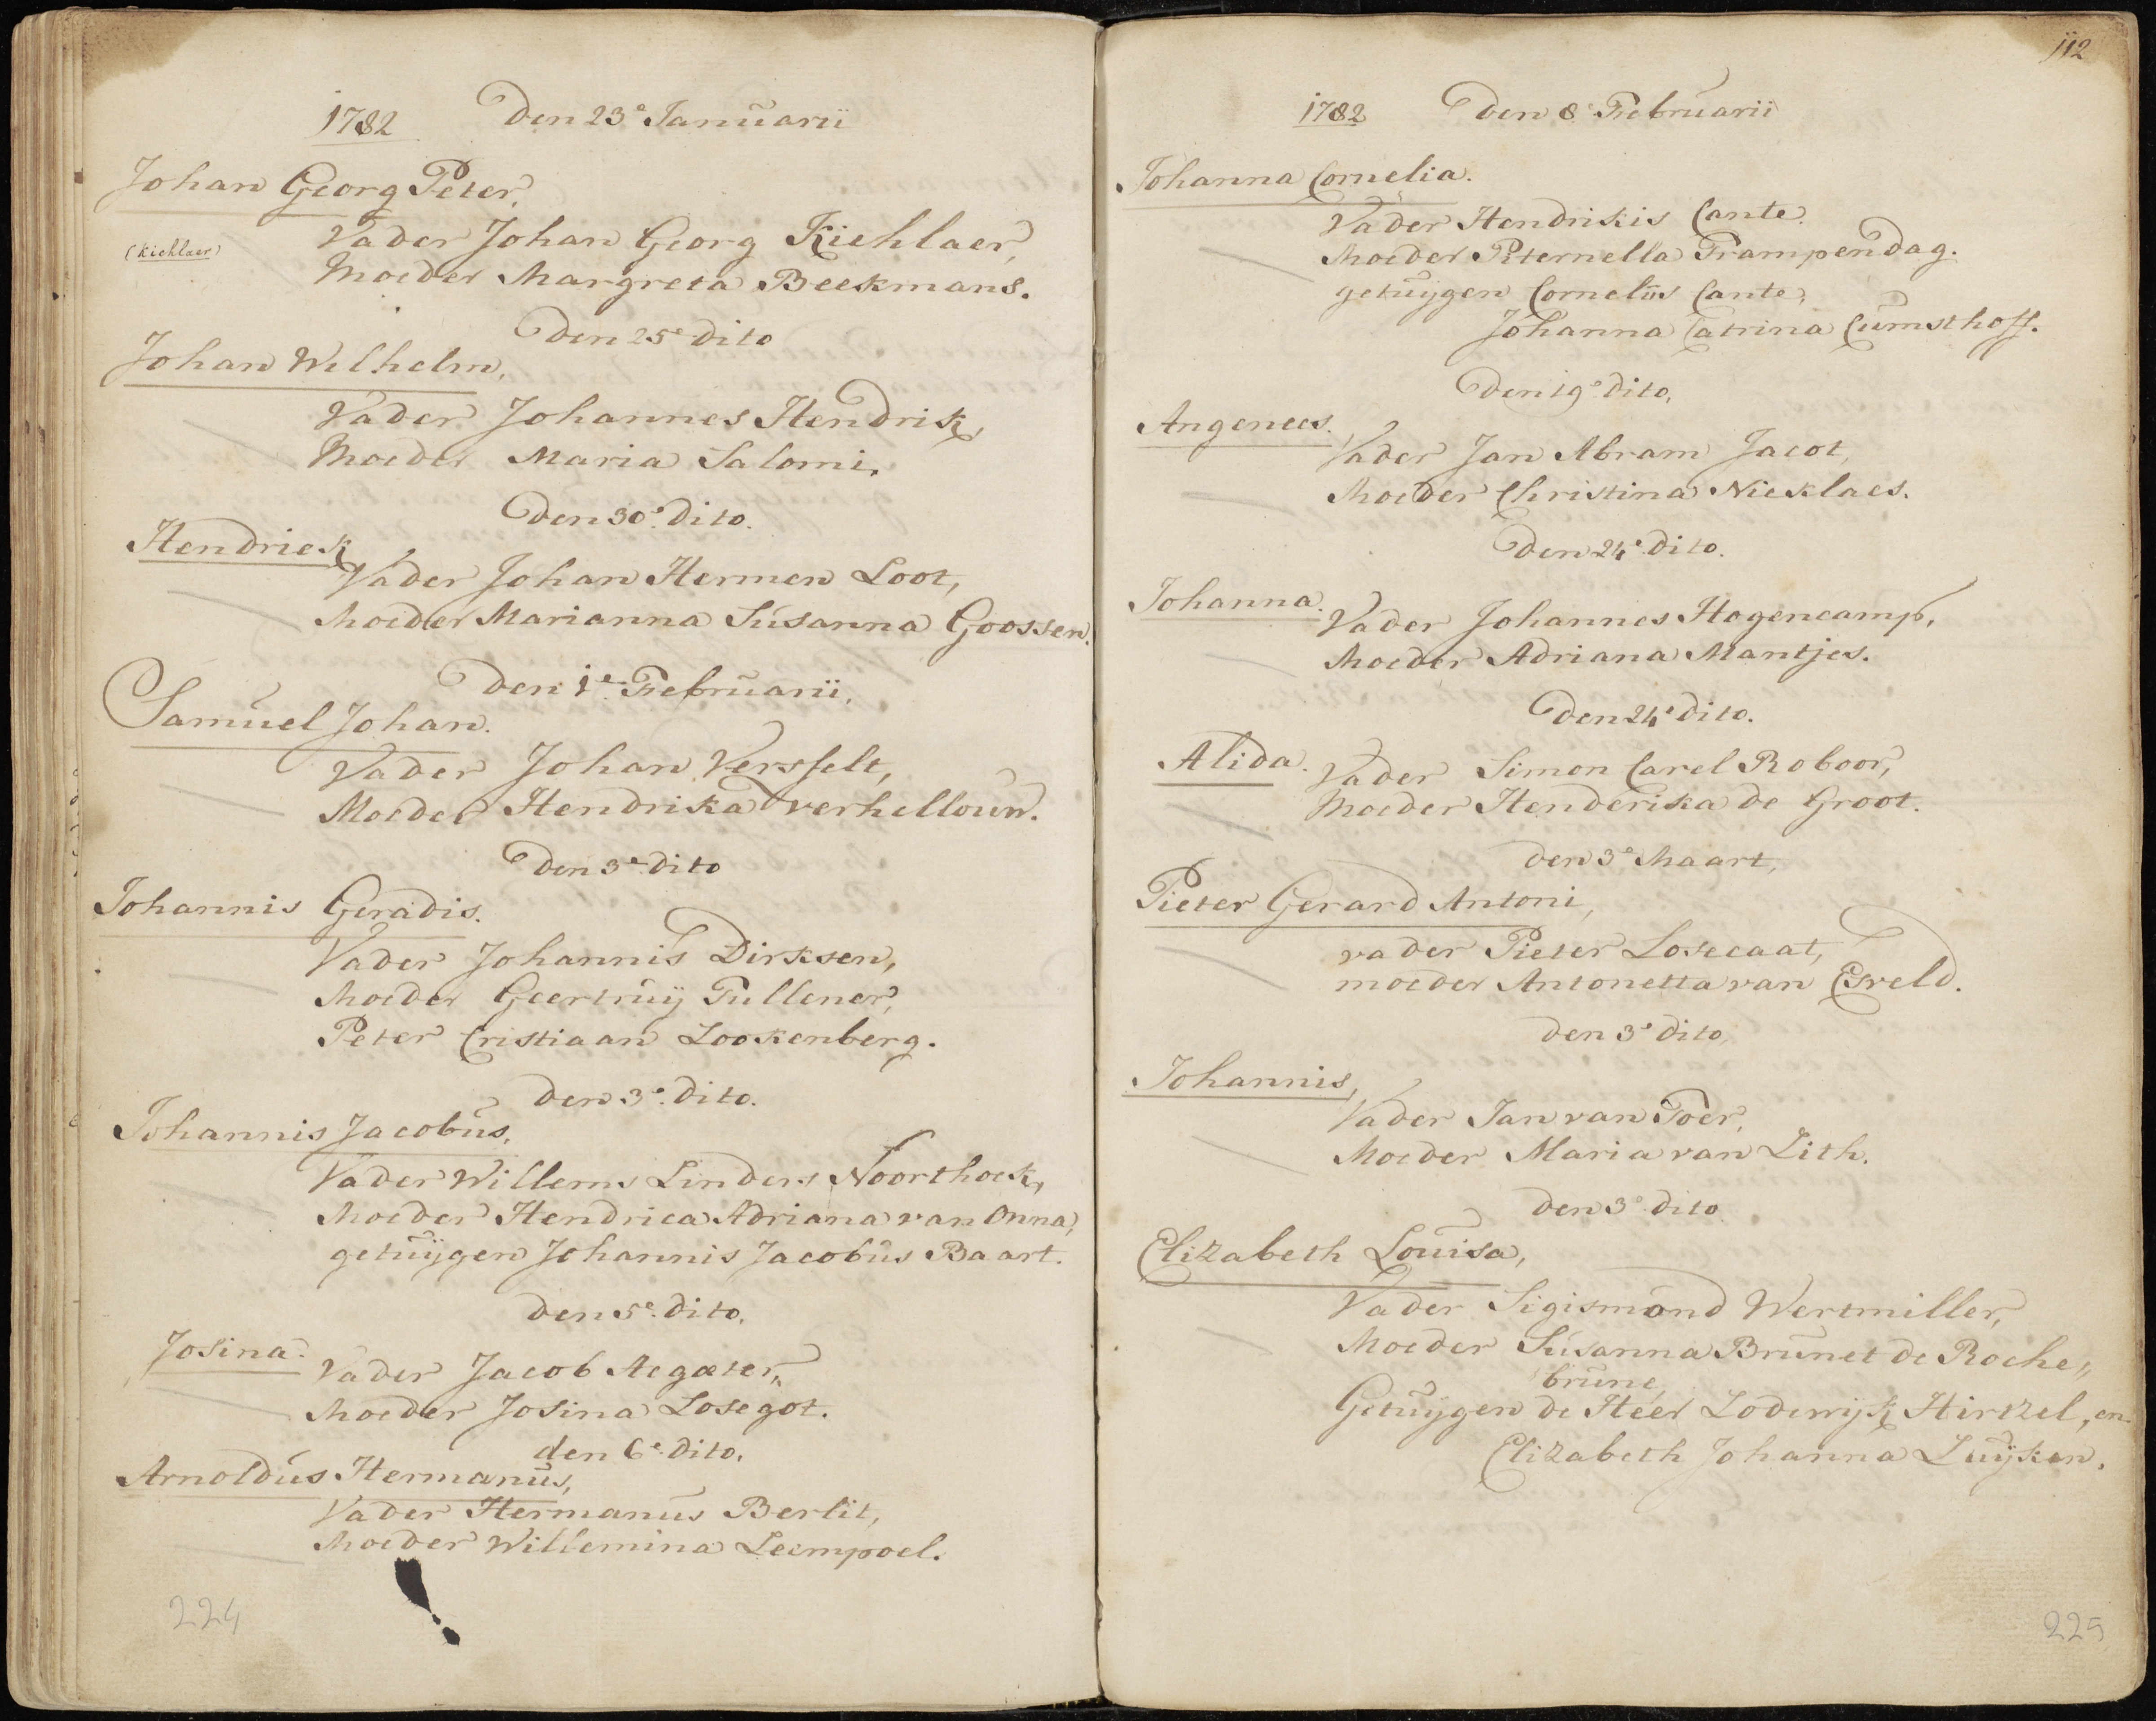 1782 Den 23e Januarii
Johan Georg Peter,
Vader Johan Georg Kiehlaer,
(Kiehlaer)
Moeder Margreta Beekmans.
Den 25e dito
Johan Wilhelm,
Vader Johannes Hendrik,
Moeder Maria Salomi.
Den 30e dito.
Hendriek
Vader Johan Hermen Loot,
Moeder Marianna Susanna Goossen.
Den 1e Februarii.
Samuel Johan.
Vader Johan Versfelt,
Moeder Hendrika verhellouw.
Den 3e dito
Johannis Geradis.
Vader Johannis Dirksen,
Moeder Geertruij Tullener,
Peter Cristiaan Lookenberg.
den 3e dito.
Johannis Jacobus,
Vader Willems Linders Noorthoek,
Moeder Hendrica Adriana van Onna,
getuijgen Johannis Jacobus Baart.
den 5e dito.
Josina.
Vader Jacob Aegater,
Moeder Josina Losegot.
den 6e dito.
Arnoldus Hermanus,
Vader Hermanus Berlit,
Moeder Willemina Leempoel.
224
112
1782 Den 8e Februarii
Johanna Cornelia.
Vader Hendrikis Cante.
Moeder Piternella Trampendag.
getuijgen Cornelus Cante,
Johanna Catrina Cumsthoff.
Den 19e dito,
Angenees.
Vader Jan Abram Jacot,
Moeder Christina Nieklaes.
Den 24e dito.
Johanna.
Vader Johannes Hogencamp,
Moeder Adriana Mantjes.
Den 24e dito.
Alida.
Vader Simon Carel Roboor,
Moeder Henderika de Groot.
den 3e Maart,
Pieter Gerard Antoni,
vader Pieter Losecaat,
moeder Antonetta van Esveld.
den 3e dito,
Johannis,
Vader Jan van Toer,
Moeder Maria van Lith.
den 3e dito
Elizabeth Louisa,
Vader Sigismond Wertmiller,
Moeder Susanna Brunet de Roche„
brune,
Getuijgen de Heer Lodewijk Hirtzel, en
Elizabeth Johanna Luijken.
225